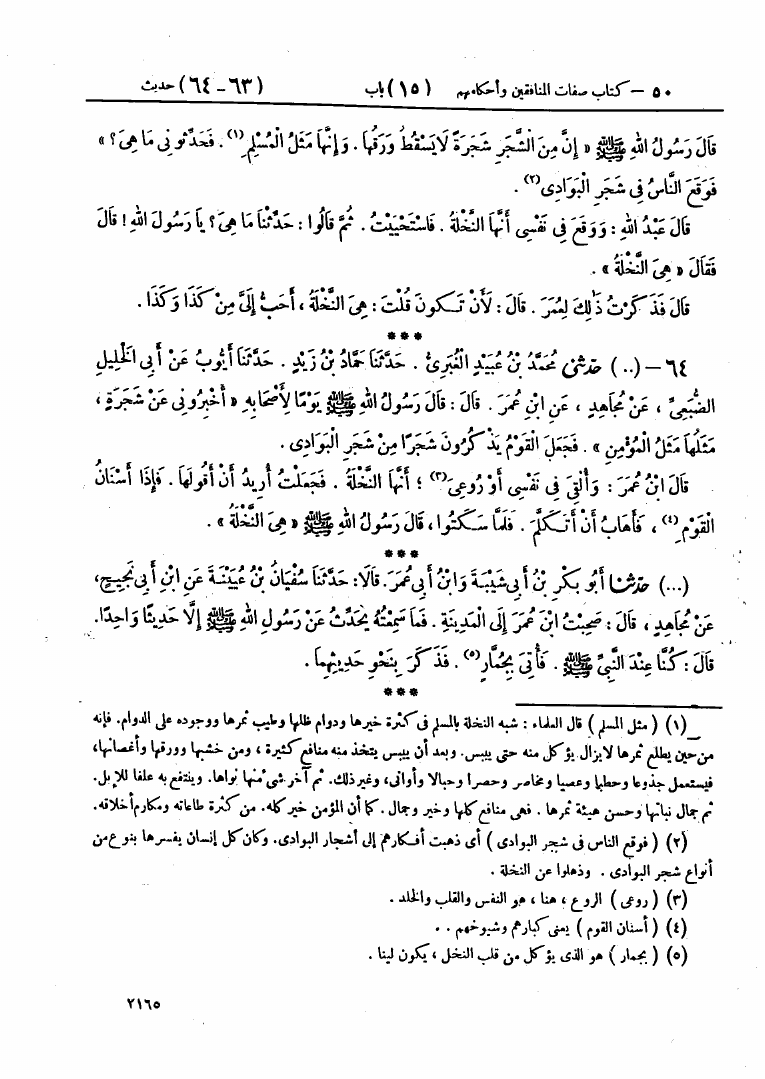 ٥٠ — كتاب صفات المنافقين وأحكامهم (١٥) باب (٦٣-٦٤) حديث
قَالَ رَسُولُ اللهِ ﷺ « إِنَّ مِنَ الشَّجَرِ شَجَرَةً لَا يَسْقُطُ وَرَقُهَا . وَإِنَّهَا مَثَلُ الْمُسْلِمِ(١) . فَحَدِّثُونِى مَا هِىَ؟ »
فَوَقَعَ النَّاسُ فِى شَجَرِ الْبَوَادِى(٢) .
قَالَ عَبْدُ اللهِ : وَوَقَعَ فِى نَفْسِى أَنَّهَا النَّخْلَةُ . فَاسْتَحْيَيْتُ . ثُمَّ قَالُوا : حَدِّثْنَا مَا هِىَ؟ يَا رَسُولَ اللهِ ! قَالَ
فَقَالَ « هِىَ النَّخْلَةُ » .
قَالَ فَذَكَرْتُ ذَٰلِكَ لِعُمَرَ . قَالَ : لَأَنْ تَكُونَ قُلْتَ : هِىَ النَّخْلَةُ ، أَحَبُّ إِلَىَّ مِنْ كَذَا وَكَذَا .
***
٦٤ — (..) حدثنى مُحَمَّدُ بْنُ عُبَيْدٍ الْغُبَرِىُّ . حَدَّثَنَا حَمَّادُ بْنُ زَيْدٍ . حَدَّثَنَا أَيُّوبُ عَنْ أَبِى الْخَلِيلِ
الضُّبَعِىِّ ، عَنْ مُجَاهِدٍ ، عَنِ ابْنِ عُمَرَ . قَالَ : قَالَ رَسُولُ اللهِ ﷺ يَوْمًا لِأَصْحَابِهِ « أَخْبِرُونِى عَنْ شَجَرَةٍ ،
مَثَلُهَا مَثَلُ الْمُؤْمِنِ » . فَجَعَلَ الْقَوْمُ يَذْكُرُونَ شَجَرًا مِنْ شَجَرِ الْبَوَادِى .
قَالَ ابْنُ عُمَرَ : وَأُلْقِىَ فِى نَفْسِى أَوْ رُوعِىَ(٣) ؛ أَنَّهَا النَّخْلَةُ . فَجَعَلْتُ أُرِيدُ أَنْ أَقُولَهَا . فَإِذَا أَسْنَانُ
الْقَوْمِ(٤) ، فَأَهَابُ أَنْ أَتَكَلَّمَ . فَلَمَّا سَكَتُوا ، قَالَ رَسُولُ اللهِ ﷺ « هِىَ النَّخْلَةُ » .
***
(...) حدثنا أَبُو بَكْرِ بْنُ أَبِى شَيْبَةَ وَابْنُ أَبِى عُمَرَ. قَالَا: حَدَّثَنَا سُفْيَانُ بْنُ عُيَيْنَةَ عَنِ ابْنِ أَبِى نَجِيحٍ،
عَنْ مُجَاهِدٍ ، قَالَ : صَحِبْتُ ابْنَ عُمَرَ إِلَى الْمَدِينَةِ . فَمَا سَمِعْتُهُ يُحَدِّثُ عَنْ رَسُولِ اللهِ ﷺ إِلَّا حَدِيثًا وَاحِدًا.
قَالَ : كُنَّا عِنْدَ النَّبِىِّ ﷺ . فَأُتِىَ بِجُمَّارٍ(٥) . فَذَكَرَ بِنَحْوِ حَدِيثِهِمَا .
***
(١) ( مثل المسلم ) قال العلماء : شبه النخلة بالمسلم فى كثرة خيرها ودوام ظلها وطيب ثمرها ووجوده على الدوام. فإنه
من حين يطلع ثمرها لا يزال يؤكل منه حتى ييبس. وبعد أن ييبس يتخذ منه منافع كثيرة ، ومن خشبها وورقها وأغصانها،
فيستعمل جذوعا وحطبا وعصيا ومخاصر وحصرا وحبالا وأوانى، وغير ذلك. ثم آخر شىء منها نواها. وينتفع به علفا للإبل.
ثم جمال نباتها وحسن هيئة ثمرها . فهى منافع كلها وخير وجمال . كما أن المؤمن خير كله. من كثرة طاعاته ومكارم أخلاقه.
(٢) ( فوقع الناس فى شجر البوادى ) أى ذهبت أفكارهم إلى أشجار البوادى. وكان كل إنسان يفسرها بنوع من
أنواع شجر البوادى . وذهلوا عن النخلة .
(٣) ( روعى ) الروع ، هنا ، هو النفس والقلب والخلد .
(٤) ( أسنان القوم ) يعنى كبارهم وشيوخهم . .
(٥) ( بجمار ) هو الذى يؤكل من قلب النخل ، يكون لينا .
٢١٦٥